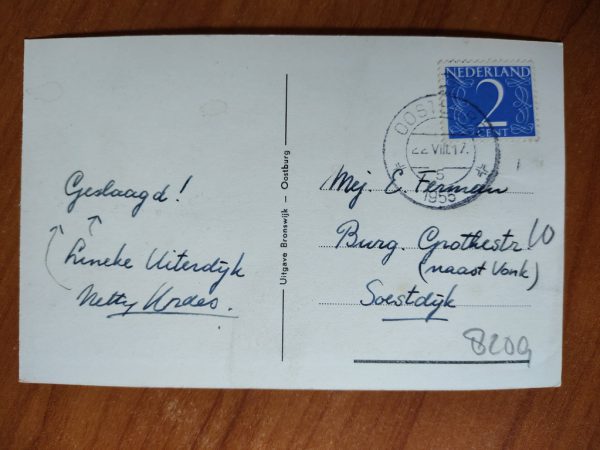 NEDERLAND
2
CENT
OOST
22 VIII.17.
5
1955
Geslaagd!
Lineke Uiterdijk
Netty Kordes.
Uitgave Bronswijk – Oostburg
Mej. E. Ferman
Burg. Grothestr 10
(naast Vonk)
Soestdijk
8209